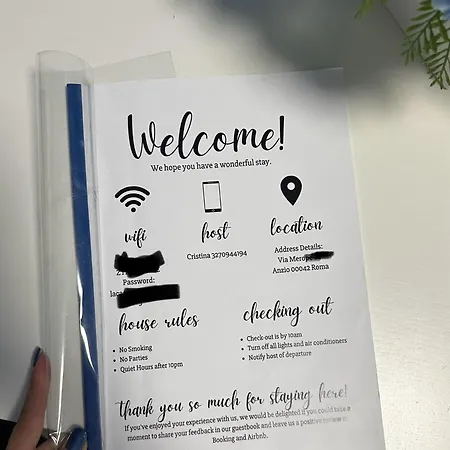 Welcome!
We hope you have a wonderful stay.
wifi
host
location
Cristina 3270944194
Address Details:
Via
Anzio 00042 Roma
Password:
house rules
checking out
• No Smoking
• No Parties
• Quiet Hours after 10pm
• Check-out is by 10am
• Turn off all lights and air conditioners
• Notify host of departure
thank you so much for staying here!
If you've enjoyed your experience with us, we would be delighted if you could take a
moment to share your feedback in our guestbook and leave us a positive review on
Booking and Airbnb.